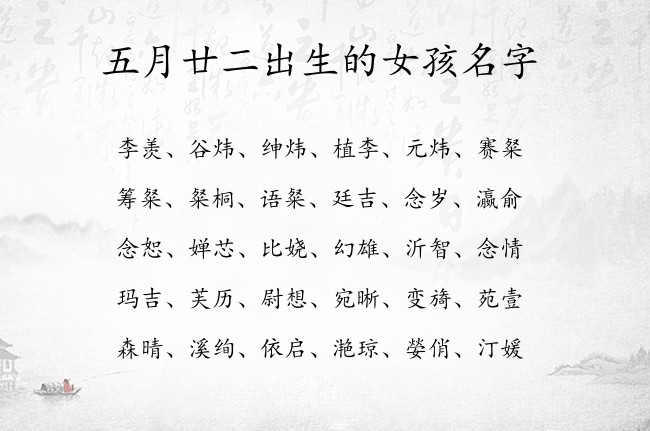 五月廿二出生的女孩名字
李羡、谷炜、绅炜、植李、元炜、赛粲
筹粲、粲桐、语粲、廷吉、念岁、瀛俞
念恕、婵芯、比娆、幻雄、沂智、念情
玛吉、芙历、尉想、宛晰、变旖、苑壹
森晴、溪绚、依启、滟琼、嫈俏、汀媛